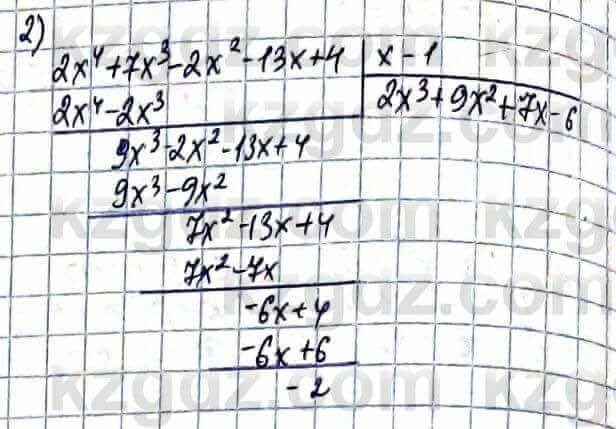 2)
2x⁴+7x³-2x²-13x+4 | x-1
2x⁴-2x³ | 2x³+9x²+7x-6
9x³-2x²-13x+4
9x³-9x²
7x²-13x+4
7x²-7x
-6x+4
-6x+6
-2
kzgdz.com